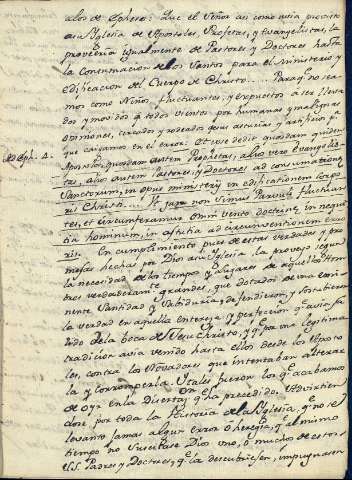 a los de Epheso: Que el Señor asi como avia proveido
a su Yglesia de Apostoles, Profetas, y Evangelistas, la
proveeria igualmente de Pastores y Doctores hasta
la Consumacion de los Santos para el ministerio y
edificacion del Cuerpo de Christo..... Para q no sea-
mos como Niños, fluctuantes, y expuestos a ser lleva-
dos y movidos a todos vientos por humanas y malignas
opiniones, cercados y rodeados de sus astucias y artificios pa
que caigamos en el error: Et ipse dedit quosdam quidem
Ad Eph. 4.
Apostolos, quosdam autem Prophetas, alios vero Evangelis-
tas, alios autem Pastores, & Doctores ad consumationem
Sanctorum, in opus ministerij in edificationem Corpo-
ris Christi.... Ut jam non simus Parvuli fluctuan-
tes, et circumferamur omni vento doctrine, in nequi-
tia hominum, in astutia ad circumventionem erro-
ris. En cumplimiento pues de estas verdades y pro-
mesas hechas por Dios a su Yglesia, la proveyo segun
la necesidad de los tiempos y lugares de aquellos Hom-
bres verdaderamte grandes, que dotados de una emi-
nente Santidad y Sabiduria, defendieron, y fortalecieron
la verdad en aquella entereza y perfeccion q avia sa-
lido de la boca de Jesu Christo, y q por una legitima
tradicion avia venido hasta ellos desde los Aposto-
les, contra los Novadores que intentaban alterar-
la y corromperla. Utales fueron los q acabamos
de oyr en la Disertaon q ha precedido. Advirtien-
dose por toda la Historia de la Yglesia, q no se
levanto jamas algun error o heregia, q al mismo
tiempo no suscitase Dios uno, o muchos de estos
SS. Padres y Doctores, q la descubriesen, impugnasen